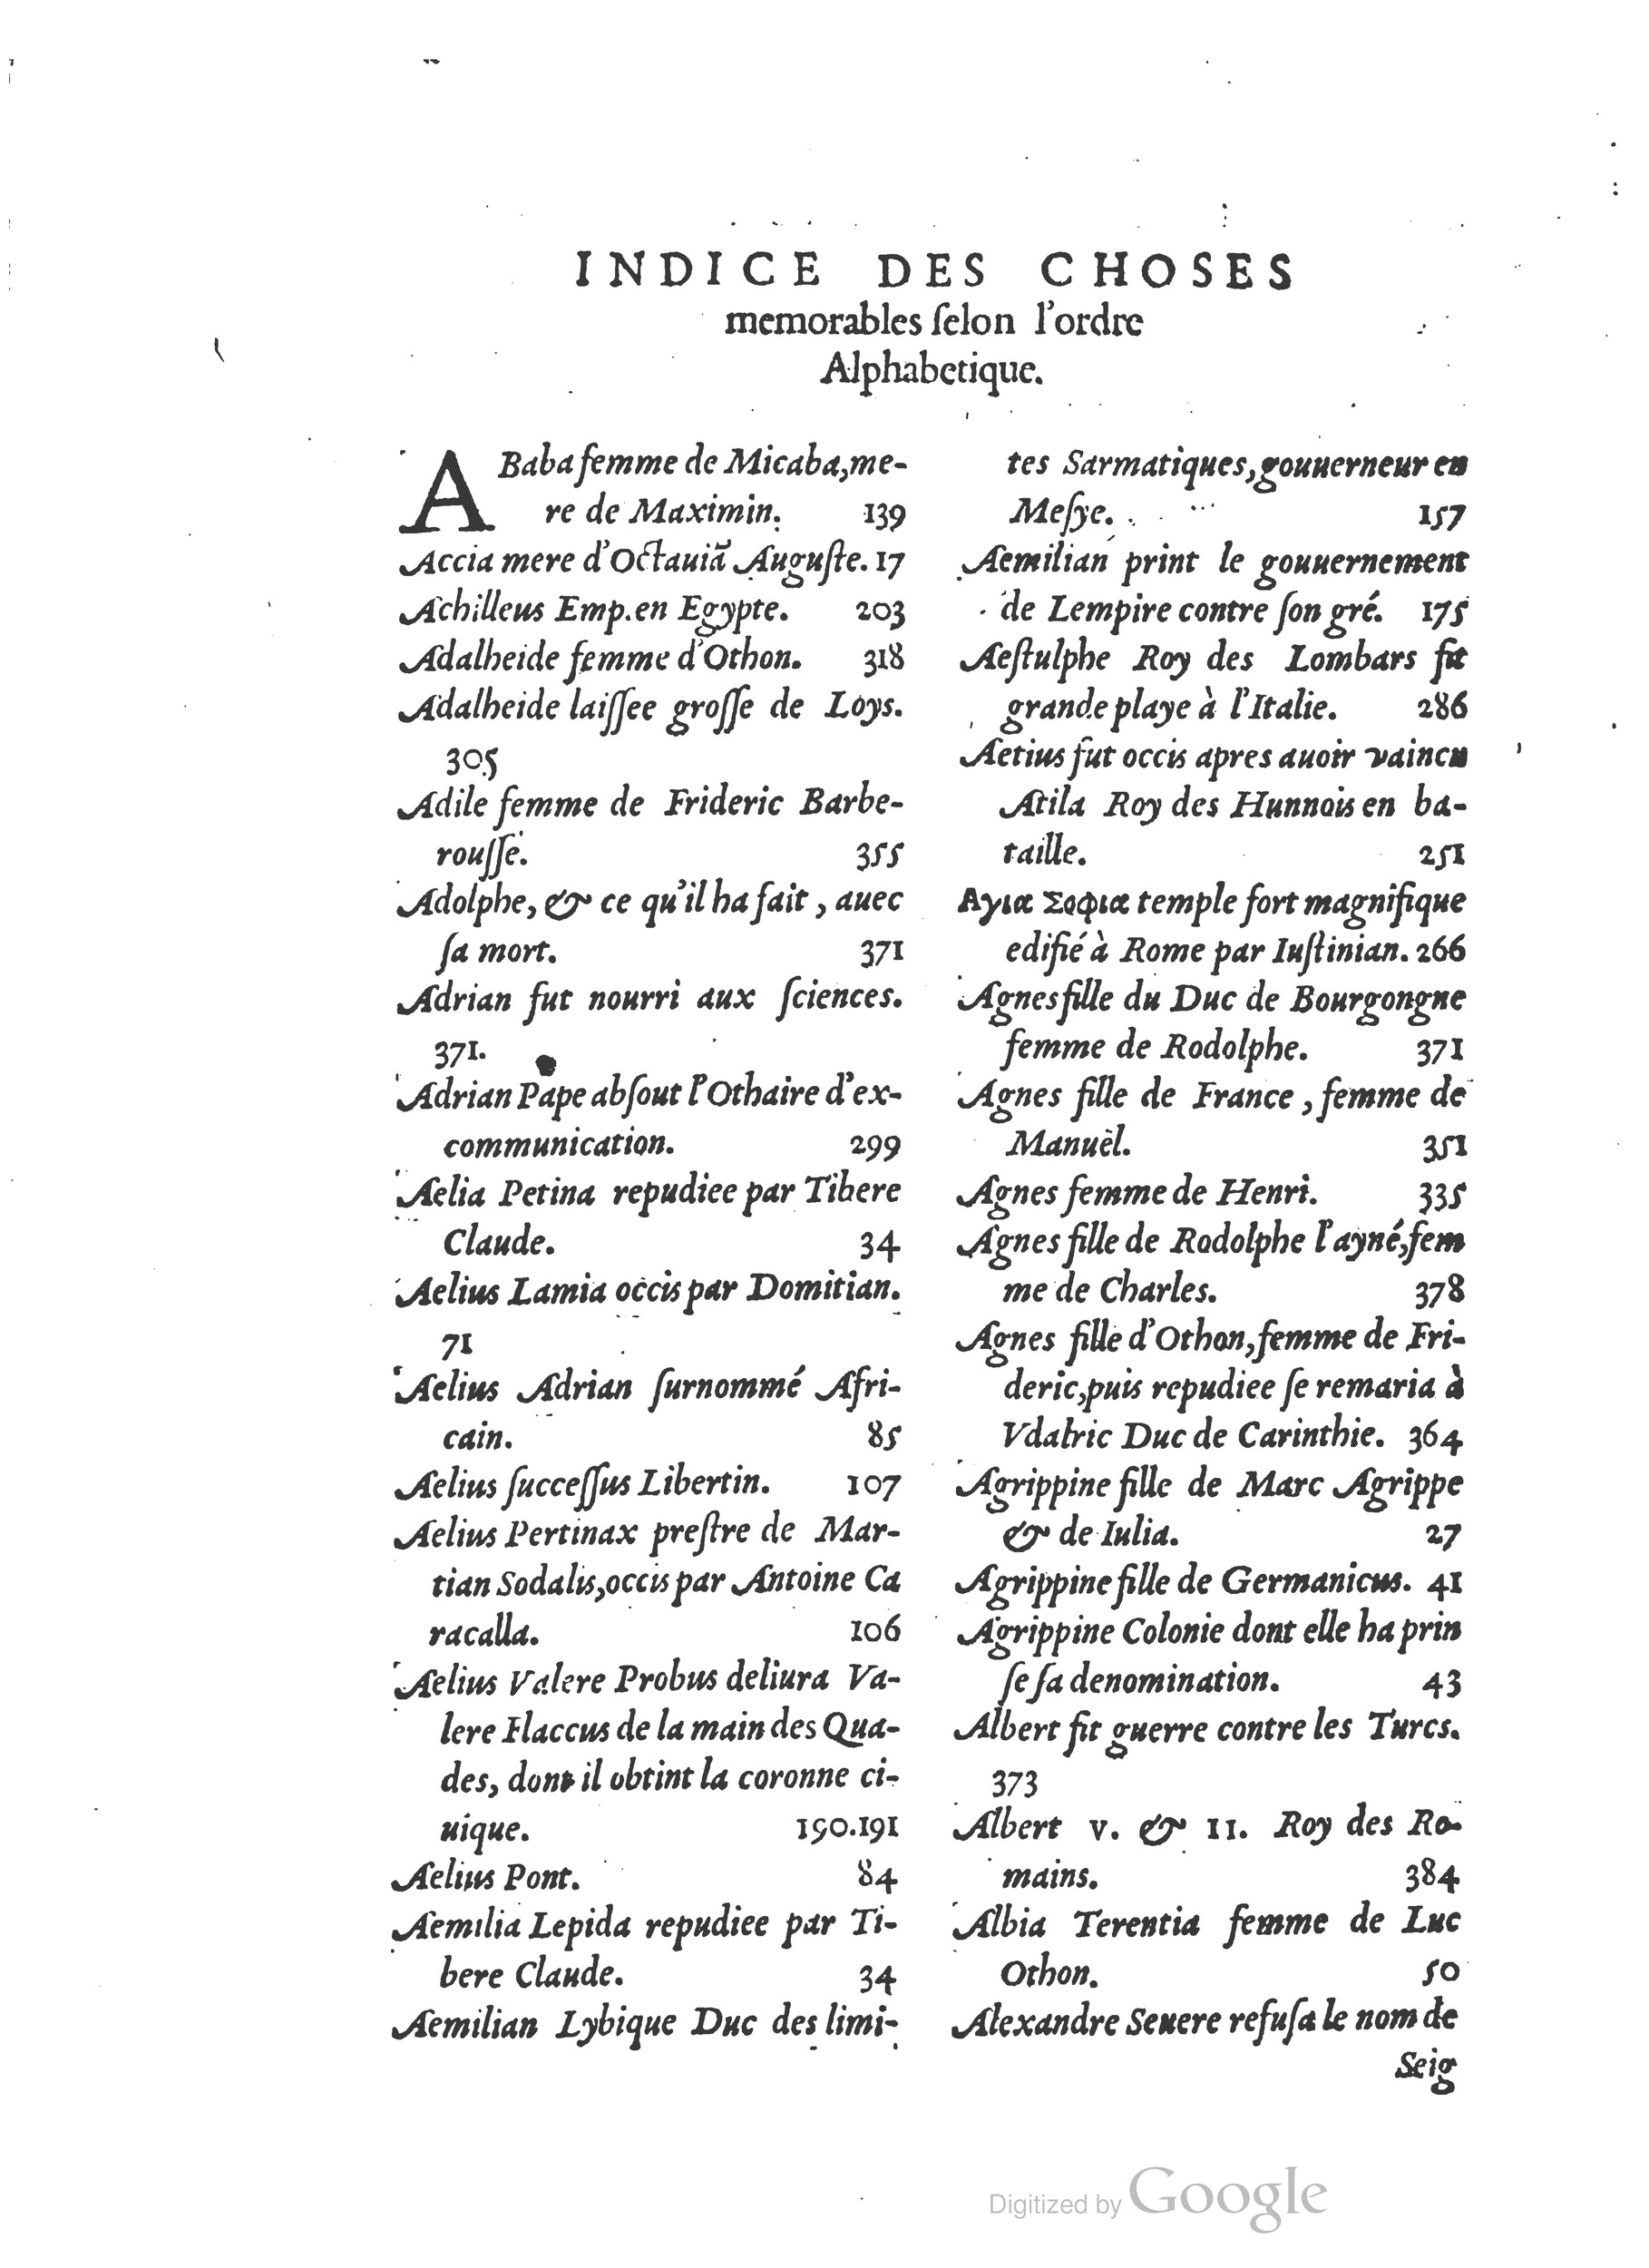 INDICE DES CHOSES
memorables ſelon l'ordre
Alphabetique.
ABaba femme de Micaba, me-
re de Maximin. 139
Accia mere d'Octauiã Auguſte. 17
Achilleus Emp. en Egypte. 203
Adalheide femme d'Othon. 318
Adalheide laiſſee groſſe de Loys.
305
Adile femme de Frideric Barbe-
rouſſe. 355
Adolphe, & ce qu'il ha fait, auec
ſa mort. 371
Adrian fut nourri aux ſciences.
371.
Adrian Pape abſout l'Othaire d'ex-
communication. 299
Aelia Petina repudiee par Tibere
Claude. 34
Aelius Lamia occis par Domitian.
71
Aelius Adrian ſurnommé Afri-
cain. 85
Aelius ſucceſſus Libertin. 107
Aelius Pertinax preſtre de Mar-
tian Sodalis, occis par Antoine Ca
racalla. 106
Aelius Valere Probus deliura Va-
lere Flaccus de la main des Qua-
des, dont il obtint la coronne ci-
uique. 190.191
Aelius Pont. 84
Aemilia Lepida repudiee par Ti-
bere Claude. 34
Aemilian Lybique Duc des limi-
tes Sarmatiques, gouuerneur en
Meſye. 157
Aemilian print le gouuernement
de Lempire contre ſon gré. 175
Aeſtulphe Roy des Lombars fit
grande playe à l'Italie. 286
Aetius fut occis apres auoir vaincu
Atila Roy des Hunnois en ba-
taille. 251
Αγια Σοφια temple fort magnifique
edifié à Rome par Iuſtinian. 266
Agnes fille du Duc de Bourgongne
femme de Rodolphe. 371
Agnes fille de France, femme de
Manuël. 351
Agnes femme de Henri. 335
Agnes fille de Rodolphe l'ayné, fem
me de Charles. 378
Agnes fille d'Othon, femme de Fri-
deric, puis repudiee ſe remaria à
Vdalric Duc de Carinthie. 364
Agrippine fille de Marc Agrippe
& de Iulia. 27
Agrippine fille de Germanicus. 41
Agrippine Colonie dont elle ha prin
ſe ſa denomination. 43
Albert fit guerre contre les Turcs.
373
Albert v. & II. Roy des Ro-
mains. 384
Albia Terentia femme de Luc
Othon. 50
Alexandre Seuere refuſa le nom de
Seig
Digitized by Google